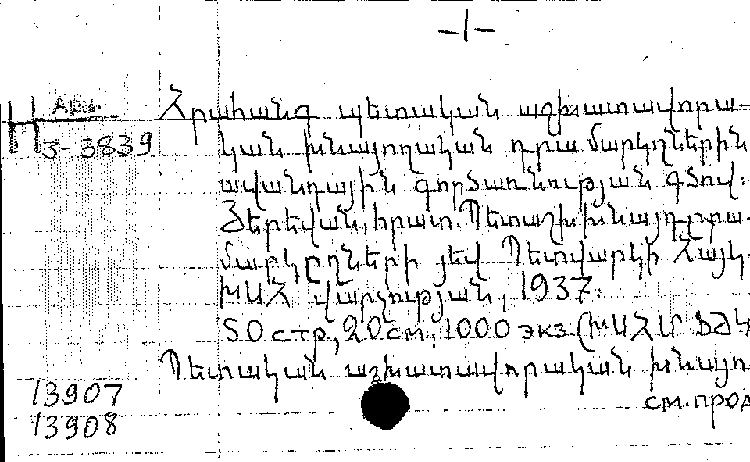 -1-
Հրահանգ պետական աշխատավորա-
կան խնայողական դրամարկղներին
3-3839
ավանդային գործառնության գծով:
Յերեվան, հրատ. Պետաշխխնայդրա-
մարկղների յեվ Պետվարկի Հայկ.
ԽՍՀ վարչության, 1937.
50 стр., 20 см, 1000 экз. (ԽՍՀՄ ՖԺԿ
Պետական աշխատավորական խնայո
13907
см. прод
13908